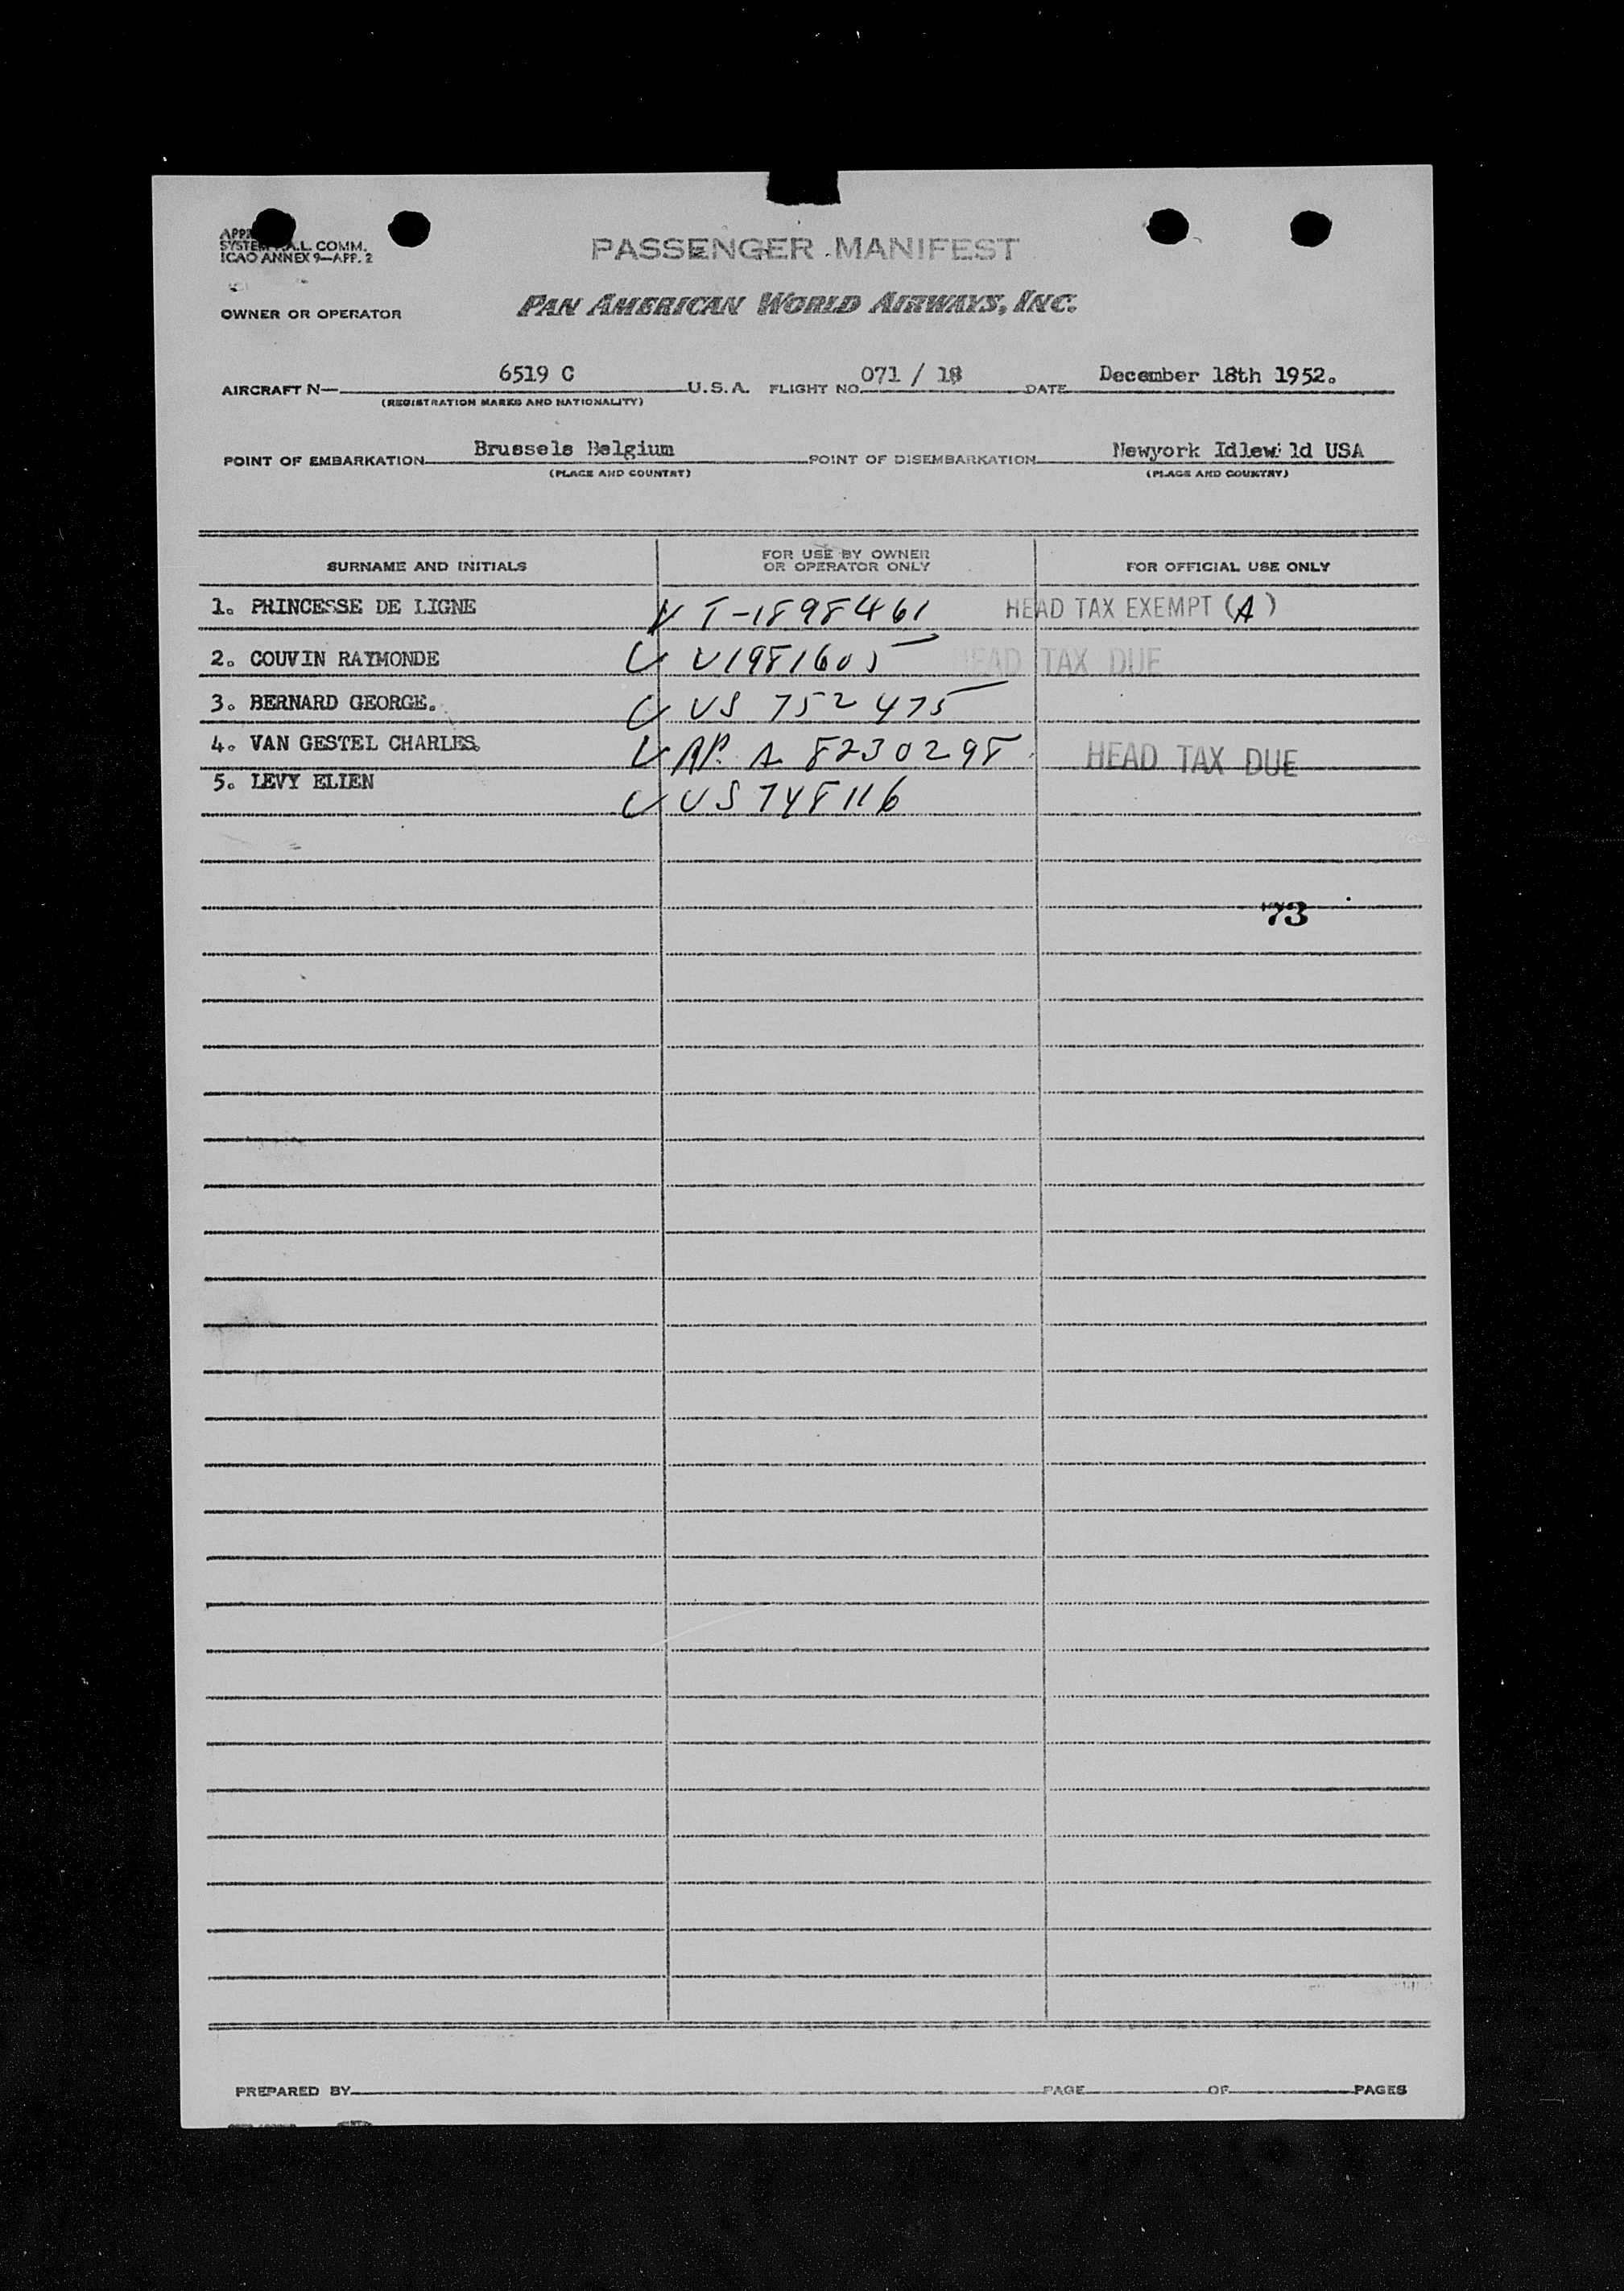 SYSTEM F.A.L. COMM.
ICAO ANNEX 9—APP. 2
PASSENGER MANIFEST
OWNER OR OPERATOR PAN AMERICAN WORLD AIRWAYS, INC.
AIRCRAFT N— 6519 C U.S.A. FLIGHT NO. 071 / 18 DATE December 18th 1952.
(REGISTRATION MARKS AND NATIONALITY)
POINT OF EMBARKATION Brussels Belgium POINT OF DISEMBARKATION Newyork Idlewild USA
(PLACE AND COUNTRY) (PLACE AND COUNTRY)
SURNAME AND INITIALS FOR USE BY OWNER OR OPERATOR ONLY FOR OFFICIAL USE ONLY
1. PRINCESSE DE LIGNE T-1898461 HEAD TAX EXEMPT (A)
2. COUVIN RAYMONDE V1981605 HEAD TAX DUE
3. BERNARD GEORGE. US 752475
4. VAN GESTEL CHARLES. RP. A 8230298 HEAD TAX DUE
5. LEVY ELIEN US 748116
73
PREPARED BY PAGE OF PAGES